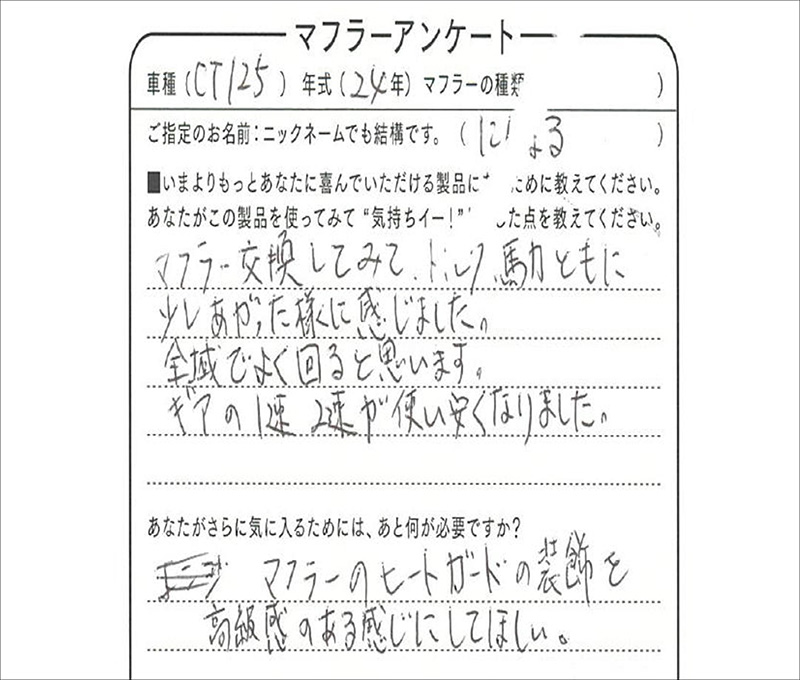 マフラーアンケート
車種（CT125）年式（24年）マフラーの種類　　　）
ご指定のお名前：ニックネームでも結構です。（　　　）
■いまよりもっとあなたに喜んでいただける製品に　ために教えてください。
あなたがこの製品を使ってみて“気持ちイー！”　した点を教えてください。
マフラー交換してみて、トルク、馬力ともに
少しあがった様に感じました。
全域でよく回ると思います。
ギアの1速 2速が使い安くなりました。
あなたがさらに気に入るためには、あと何が必要ですか？
マフラーのヒートガードの装飾を
高級感のある感じにしてほしい。